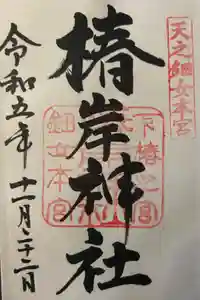 天之鈿女本宮
椿岸神社
令和五年十一月二十三日
鈿女本宮